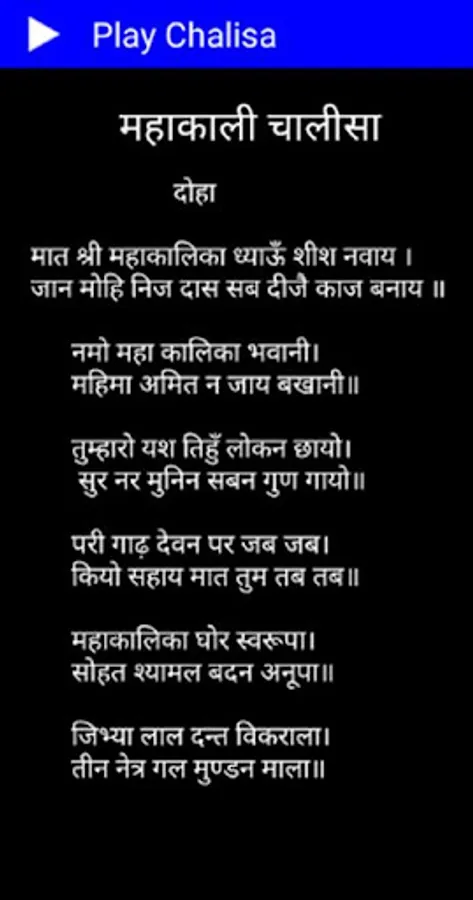 Play Chalisa
महाकाली चालीसा
दोहा
मात श्री महाकालिका ध्याऊँ शीश नवाय ।
जान मोहि निज दास सब दीजै काज बनाय ॥
नमो महा कालिका भवानी।
महिमा अमित न जाय बखानी॥
तुम्हारो यश तिहुँ लोकन छायो।
सुर नर मुनिन सबन गुण गायो॥
परी गाढ़ देवन पर जब जब।
कियो सहाय मात तुम तब तब॥
महाकालिका घोर स्वरूपा।
सोहत श्यामल बदन अनूपा॥
जिभ्या लाल दन्त विकराला।
तीन नेत्र गल मुण्डन माला॥